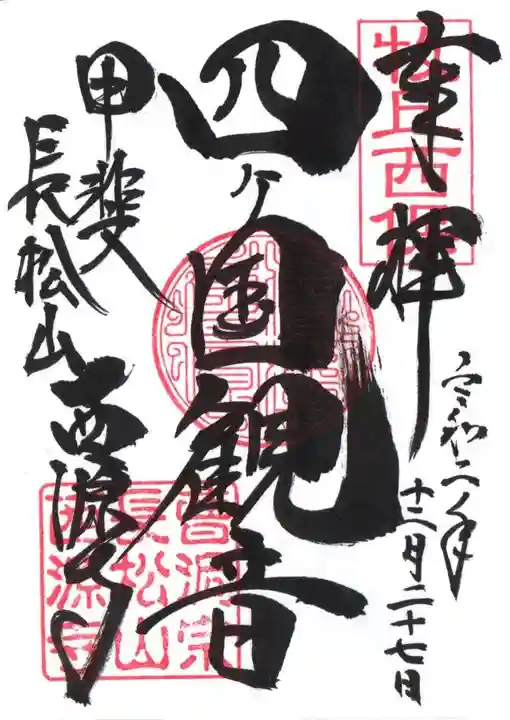 奉拝
牧丘西保
令和二年
十二月二十七日
四ケ国観音
甲斐
長松山
西源寺
曹洞宗
長松山
西源寺